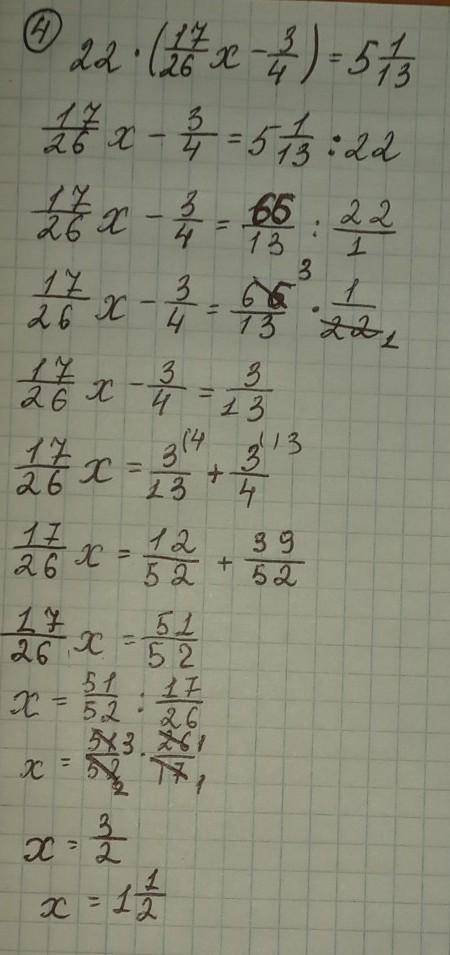 ④ 22 · (17/26 x − 3/4) = 5 1/13
17/26 x − 3/4 = 5 1/13 : 22
17/26 x − 3/4 = 66/13 : 22/1
17/26 x − 3/4 = 66 3/13 · 1/22 1
17/26 x − 3/4 = 3/13
17/26 x = 3(4/13 + 3(13/4
17/26 x = 12/52 + 39/52
17/26 x = 51/52
x = 51/52 : 17/26
x = 51 3/52 2 · 26 1/17 1
x = 3/2
x = 1 1/2